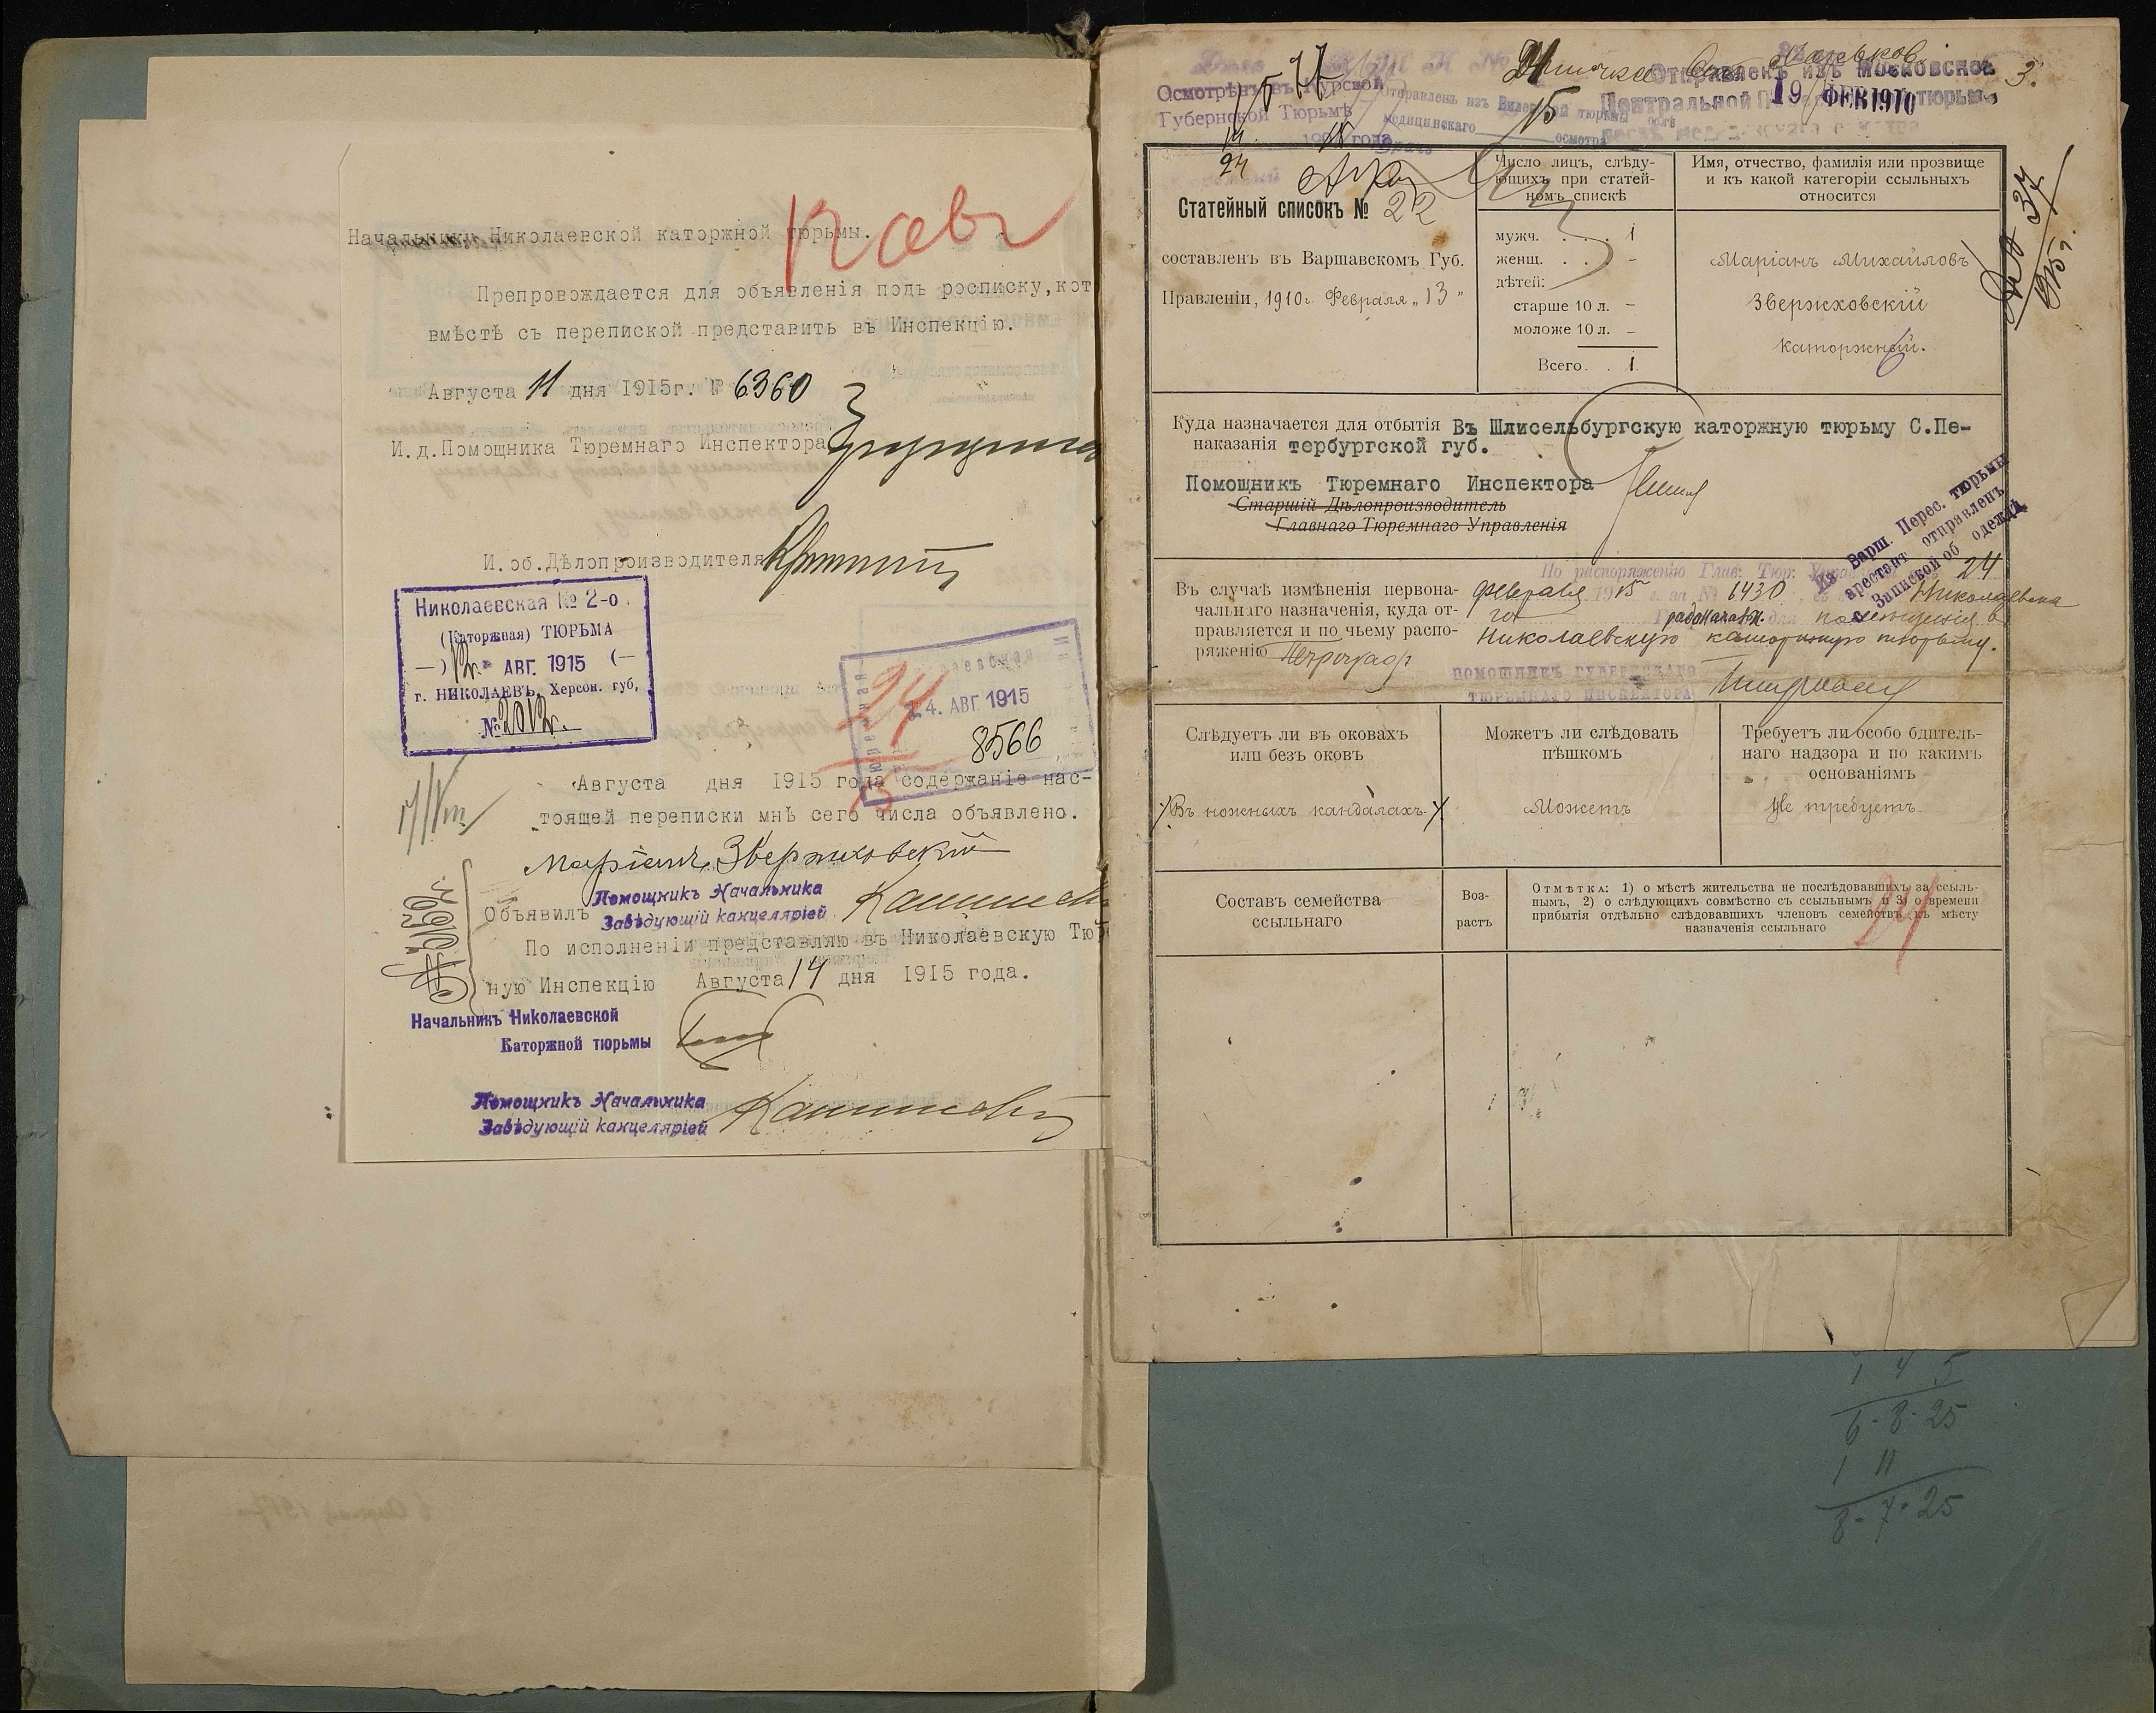 Начальнику Николаевской каторжной тюрьмы.
Препровождается для объявленія подъ росписку, кот
вмѣстѣ съ перепиской представить въ Инспекцію.
Августа 11 дня 1915г. № 6360
И.д.Помощника Тюремнаго Инспектора
И.об.Дѣлопроизводителя
Николаевская № 2-о
(Каторжная) ТЮРЬМА
12 АВГ. 1915
г. НИКОЛАЕВЪ, Херсон. губ,
№ 2012.
24
14. АВГ. 1915
8566
Августа дня 1915 года содержаніе нас-
тоящей переписки мнѣ сего числа объявлено.
Маріанъ Звержховскій
Объявилъ
Помощникъ Начальника
Завѣдующій канцеляріей
По исполненіи представляю въ Николаевскую Тюр
ную Инспекцію Августа 14 дня 1915 года.
Начальникъ Николаевской
Каторжной тюрьмы
Помощникъ Начальника
Завѣдующій канцеляріей
Осмотрѣнъ въ Курской
Губернской Тюрьмѣ
года
Отправленъ изъ Виленской тюрьмы послѣ
медицинскаго осмотра
Отправленъ изъ Московской
Центральной тюрьмы
19 ФЕВ 1910
3.
Статейный списокъ № 22
составленъ въ Варшавскомъ Губ.
Правленіи, 1910 г. Февраля „13"
Число лицъ, слѣду-
ющихъ при статей-
номъ спискѣ
мужч. . . . 1
женщ. . . . –
дѣтей:
старше 10 л. –
моложе 10 л. –
Всего. . 1
Имя, отчество, фамилія или прозвище
и къ какой категоріи ссыльныхъ
относится
Маріанъ Михайловъ
Звержховскій
каторжный.
Куда назначается для отбытія
наказанія
Въ Шлисельбургскую каторжную тюрьму С.Пе-
тербургской губ.
Помощникъ Тюремнаго Инспектора
Старшій Дѣлопроизводитель
Главнаго Тюремнаго Управленія
Из Варш. Перес. тюрьмы
арестант отправленъ
с Запиской об одеждѣ
Въ случаѣ измѣненія первона-
чальнаго назначенія, куда от-
правляется и по чьему распо-
ряженію
По распоряженію Глав: Тюр: 24
Февраля 1915 г. за № 6430
Николаевскую каторжную тюрьму.
ПОМОЩНИКЪ ГУБЕРНСКАГО
ТЮРЕМНАГО ИНСПЕКТОРА
Слѣдуетъ ли въ оковахъ
или безъ оковъ
Въ ножныхъ кандалахъ.
Можетъ ли слѣдовать
пѣшкомъ
Можетъ
Требуетъ ли особо бдитель-
наго надзора и по какимъ
основаніямъ
Не требуетъ.
Составъ семейства
ссыльнаго
Воз-
растъ
Отмѣтка: 1) о мѣстѣ жительства не послѣдовавшихъ за ссыль-
нымъ, 2) о слѣдующихъ совмѣстно съ ссыльнымъ и 3) о времени
прибытія отдѣльно слѣдовавшихъ членовъ семействъ къ мѣсту
назначенія ссыльнаго
1 4 5
6-8-25
1 11
8-7-25